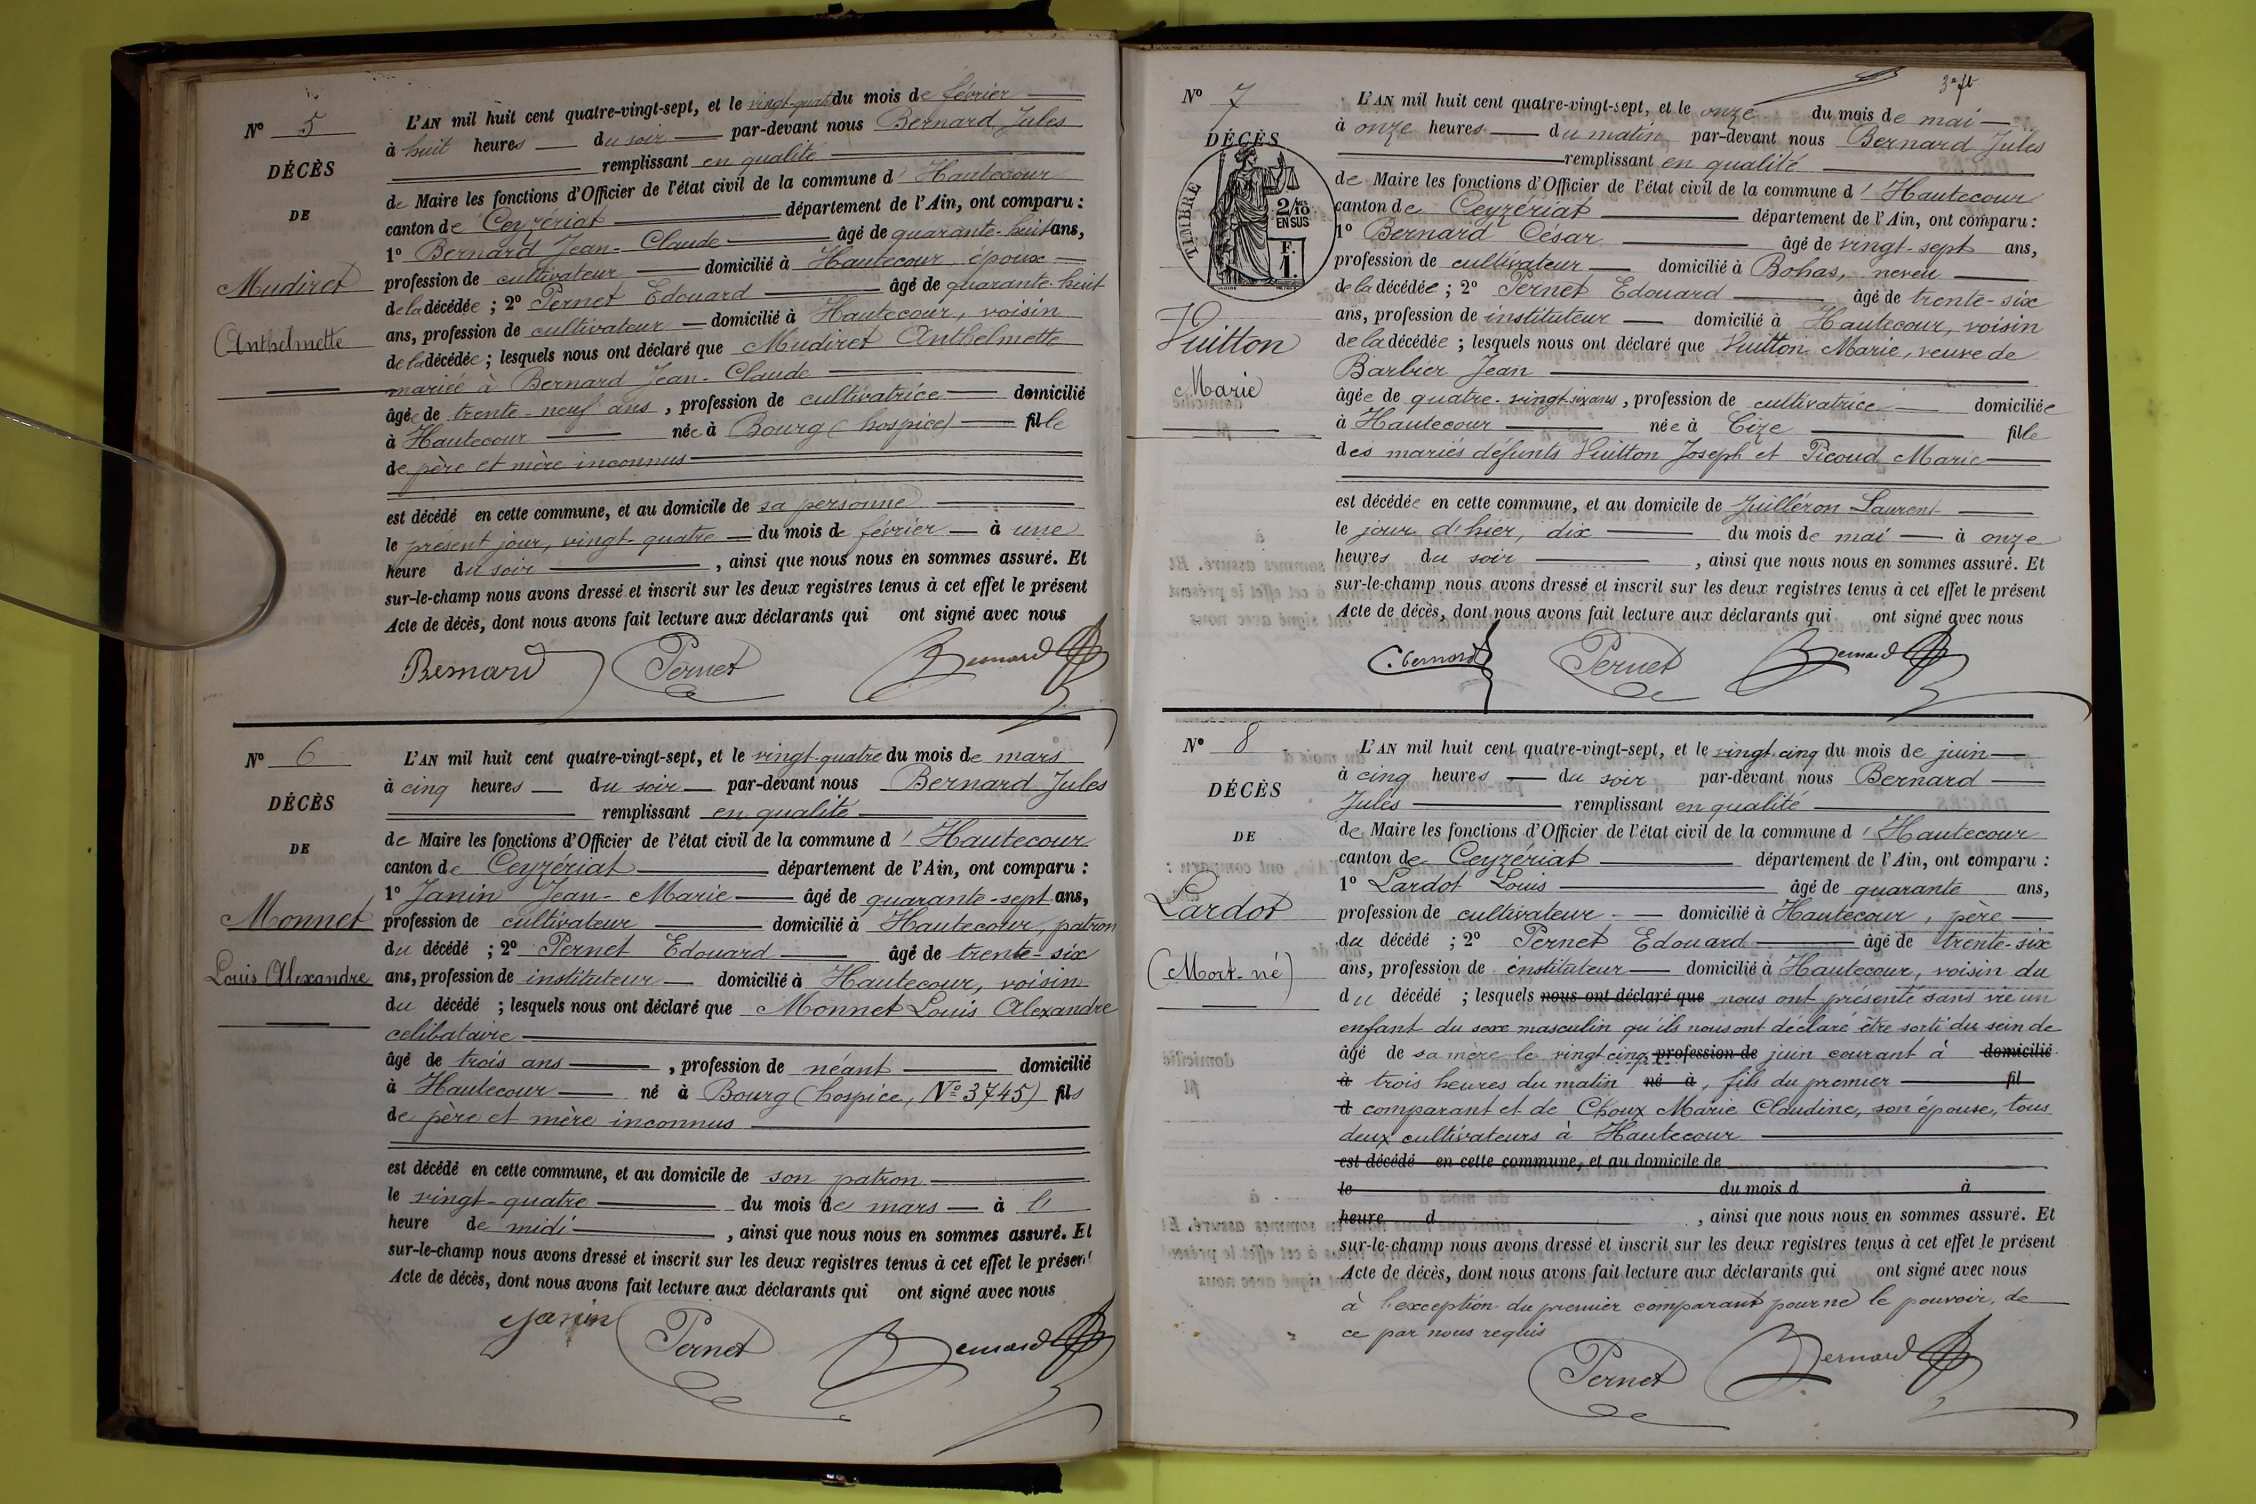 N° 5
DÉCÈS
DE
Mudiret
Anthelmette
L'AN mil huit cent quatre-vingt-sept, et le vingt-quatre du mois de février
à huit heures du soir par-devant nous Bernard Jules
remplissant en qualité
de Maire les fonctions d'Officier de l'état civil de la commune d'Hautecour
canton de Ceyzériat département de l'Ain, ont comparu :
1° Bernard Jean-Claude âgé de quarante-huit ans,
profession de cultivateur domicilié à Hautecour, époux
de la décédée ; 2° Pernet Edouard âgé de quarante-huit
ans, profession de cultivateur domicilié à Hautecour, voisin
de la décédée ; lesquels nous ont déclaré que Mudiret Anthelmette
mariée à Bernard Jean-Claude
âgée de trente-neuf ans, profession de cultivatrice domicilié
à Hautecour née à Bourg (hospice) fille
de père et mère inconnus
est décédé en cette commune, et au domicile de sa personne
le présent jour, vingt-quatre du mois de février à une
heure du soir, ainsi que nous nous en sommes assuré. Et
sur-le-champ nous avons dressé et inscrit sur les deux registres tenus à cet effet le présent
Acte de décès, dont nous avons fait lecture aux déclarants qui ont signé avec nous
Bernard Pernet Bernard
N° 6
DÉCÈS
DE
Monnet
Louis Alexandre
L'AN mil huit cent quatre-vingt-sept, et le vingt-quatre du mois de mars
à cinq heures du soir par-devant nous Bernard Jules
remplissant en qualité
de Maire les fonctions d'Officier de l'état civil de la commune d'Hautecour
canton de Ceyzériat département de l'Ain, ont comparu :
1° Janin Jean-Marie âgé de quarante-sept ans,
profession de cultivateur domicilié à Hautecour, patron
du décédé ; 2° Pernet Edouard âgé de trente-six
ans, profession de instituteur domicilié à Hautecour, voisin
du décédé ; lesquels nous ont déclaré que Monnet Louis Alexandre
celibataire
âgé de trois ans, profession de néant domicilié
à Hautecour né à Bourg (hospice, N° 3745) fils
de père et mère inconnus
est décédé en cette commune, et au domicile de son patron
le vingt-quatre du mois de mars à l
heure de midi, ainsi que nous nous en sommes assuré. Et
sur-le-champ nous avons dressé et inscrit sur les deux registres tenus à cet effet le présent
Acte de décès, dont nous avons fait lecture aux déclarants qui ont signé avec nous
Janin Pernet Bernard
N° 7
DÉCÈS
TIMBRE
2/10
EN SUS
F.
1.
Vuitton
Marie
L'AN mil huit cent quatre-vingt-sept, et le onze du mois de mai
à onze heures du matin par-devant nous Bernard Jules
remplissant en qualité
de Maire les fonctions d'Officier de l'état civil de la commune d'Hautecour
canton de Ceyzériat département de l'Ain, ont comparu :
1° Bernard César âgé de vingt-sept ans,
profession de cultivateur domicilié à Bohas, neveu
de la décédée ; 2° Pernet Edouard âgé de trente-six
ans, profession de instituteur domicilié à Hautecour, voisin
de la décédée ; lesquels nous ont déclaré que Vuitton Marie, veuve de
Barbier Jean
âgée de quatre-vingt-six ans, profession de cultivatrice domiciliée
à Hautecour née à Cize fille
des mariés défunts Vuitton Joseph et Picoud Marie
est décédée en cette commune, et au domicile de Juilléron Laurent
le jour d'hier, dix du mois de mai à onze
heures du soir, ainsi que nous nous en sommes assuré. Et
sur-le-champ nous avons dressé et inscrit sur les deux registres tenus à cet effet le présent
Acte de décès, dont nous avons fait lecture aux déclarants qui ont signé avec nous
C. Bernard Pernet Bernard
N° 8
DÉCÈS
DE
Lardot
(Mort-né)
L'AN mil huit cent quatre-vingt-sept, et le vingt-cinq du mois de juin
à cinq heures du soir par-devant nous Bernard
Jules remplissant en qualité
de Maire les fonctions d'Officier de l'état civil de la commune d'Hautecour
canton de Ceyzériat département de l'Ain, ont comparu :
1° Lardot Louis âgé de quarante ans,
profession de cultivateur domicilié à Hautecour, père
du décédé ; 2° Pernet Edouard âgé de trente-six
ans, profession de instituteur domicilié à Hautecour, voisin du
du décédé ; lesquels nous ont déclaré que nous ont présenté sans vie un
enfant du sexe masculin qu'ils nous ont déclaré être sorti du sein de
âgé de sa mère le vingt cinq profession de juin courant à domicilié
à trois heures du matin né à, fils du premier fil
d comparant et de Choux Marie Claudine, son épouse, tous
deux cultivateurs à Hautecour
est décédé en cette commune, et au domicile de
le du mois d à
heure d, ainsi que nous nous en sommes assuré. Et
sur-le-champ nous avons dressé et inscrit sur les deux registres tenus à cet effet le présent
Acte de décès, dont nous avons fait lecture aux déclarants qui ont signé avec nous
à l'exception du premier comparant pour ne le pouvoir, de
ce par nous requis
Pernet Bernard